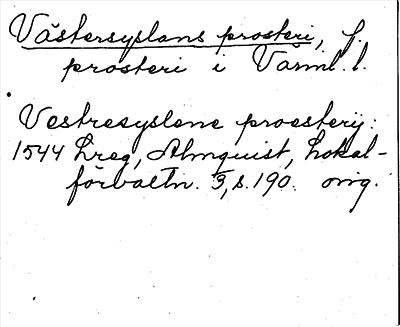 Västersyslans prosteri, f.
prosteri i Värml. l.
Vestresyslene proestery:
1544 Lreg, Almquist, Lokal-
förvaltn. 3, s. 190. orig.